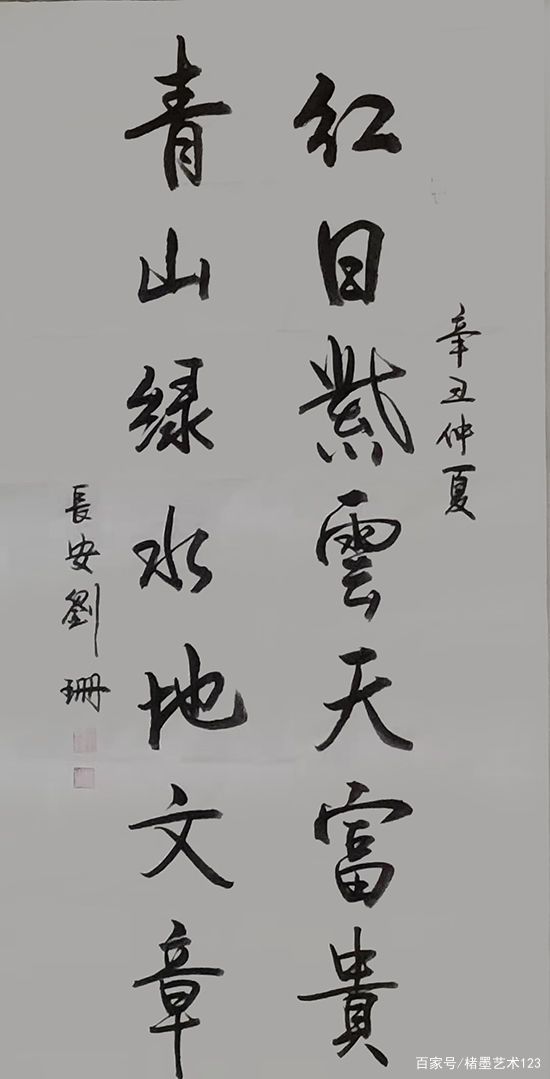 辛丑仲夏
红日紫雲天富貴
青山绿水地文章
長安劉珊
百家号/楮墨艺术123